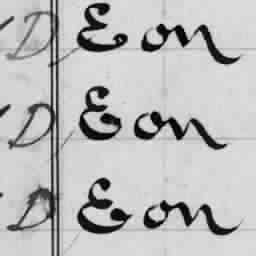 D, Eon
D, Eon
D, Eon